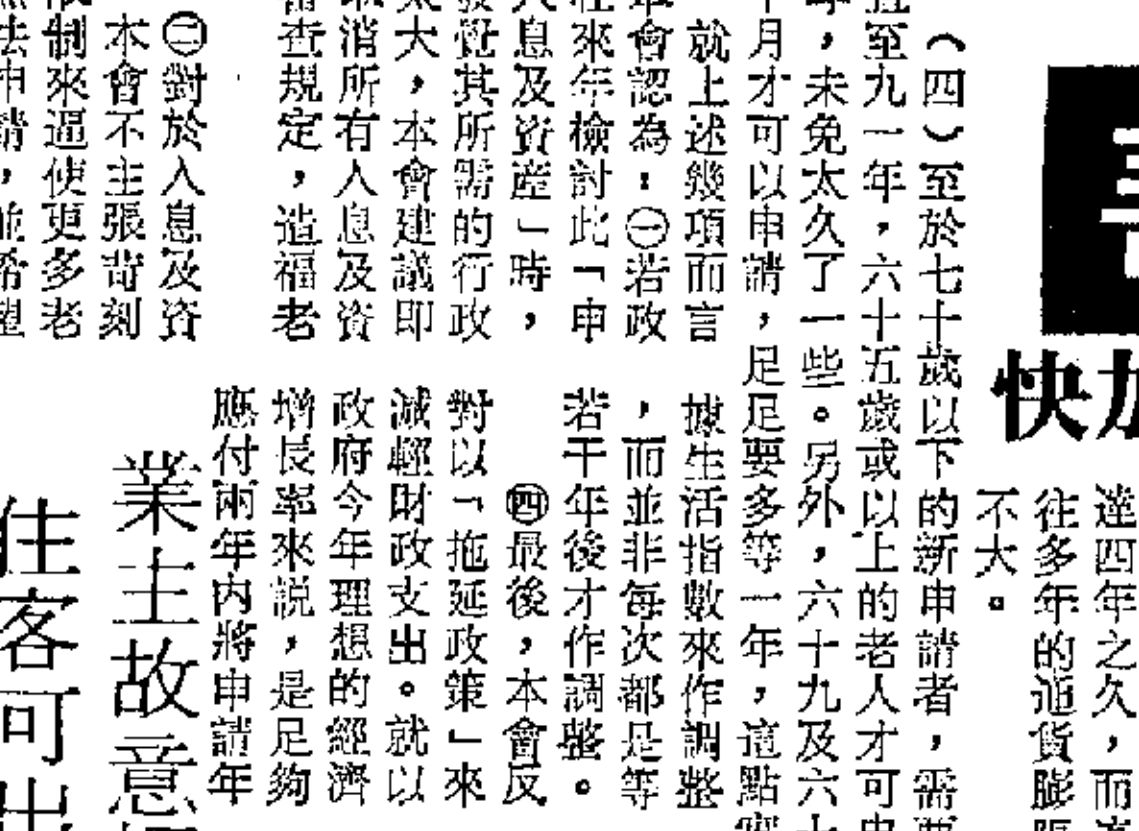 快加
達四年之久，而
往多年的通貨膨
不大。
（四）至於七十歲以下的新申請者，需要
至九一年，六十五歲或以上的老人才可申
，未免太久了一些。另外，六十九及六十
月才可以申請，足足要多等一年，這點實
就上述幾項而言
會認為：㊀若政
來年檢討此「申
息及資產」時，
覺其所需的行政
大，本會建議即
消所有入息及資
查規定，造福老
㊁對於入息及資
本會不主張苛刻
制來逼使更多老
法申請，並希望
據生活指數來作調整
，而並非每次都是等
若干年後才作調整。
㊃最後，本會反
對以「拖延政策」來
減輕財政支出。就以
政府今年理想的經濟
增長率來説，是足夠
應付兩年内將申請年
業主故意
住客可出